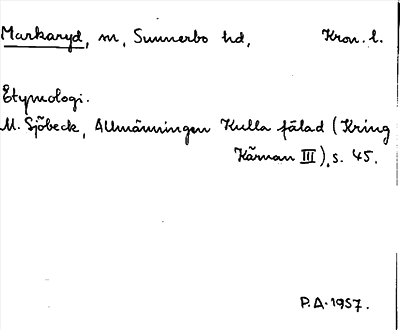 Markaryd, m, Sunnerbo hd, Kron. l.
Etymologi.
M. Sjöbeck, Allmänningen Kulla fälad (Kring
Kärnan III), s. 45.
P.A. 1957.